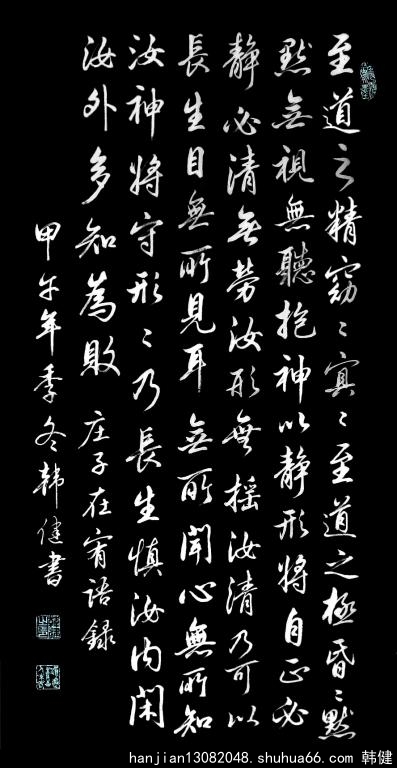 至道之精窈〻冥〻至道之極昏〻默
默無視無聽抱神以静形將自正必
静必清無勞汝形無摇汝清乃可以
長生目無所見耳無所聞心無所知
汝神將守形〻乃長生慎汝内閑
汝外多知為敗 庄子在宥语録
甲午年季冬韩健書
hanjian13082048.shuhua66.com 韩健